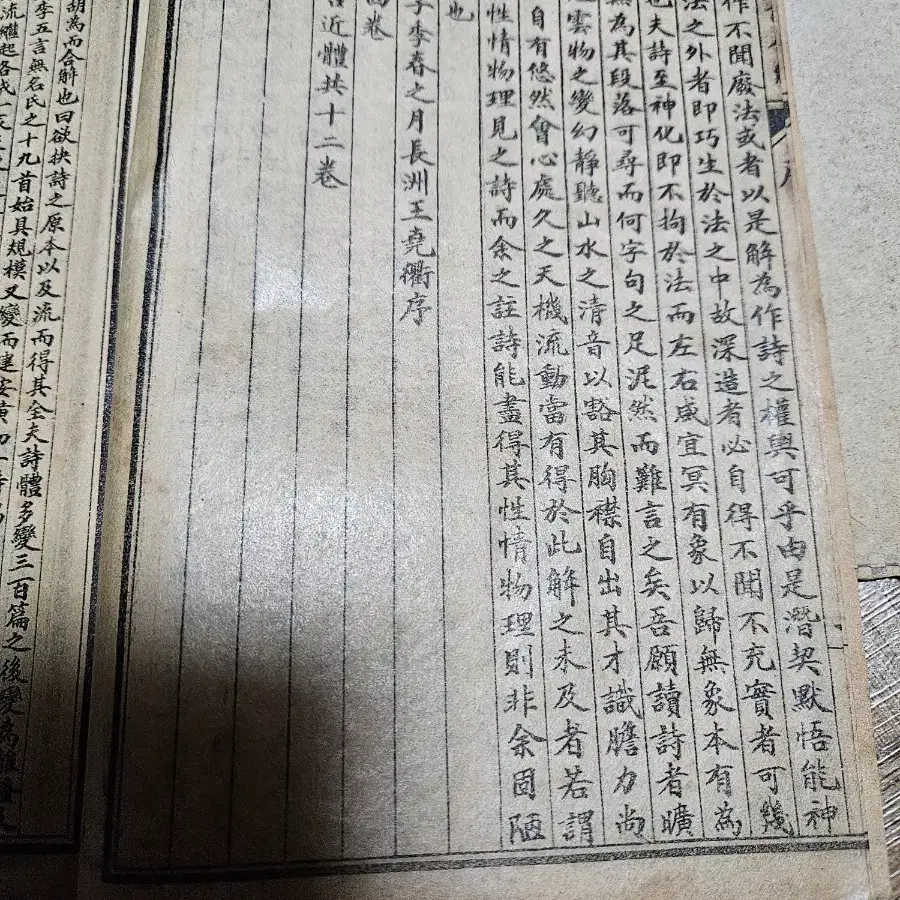 作不聞廢法或者以是解為作詩之權輿可乎由是潛契默悟能神
法之外者即巧生於法之中故深造者必自得不聞不充實者可幾
也夫詩至神化即不拘於法而左右咸宜冥有象以歸無象本有為
無為其段落可尋而何字句之足泥然而難言之矣吾願讀詩者曠
雲物之變幻靜聽山水之清音以豁其胸襟自出其才識膽力尚
自有悠然會心處久之天機流動當有得於此解之未及者若謂
性情物理見之詩而余之註詩能盡得其性情物理則非余固陋
也
季春之月長洲王堯衢序
卷
近體共十二卷
胡為而合解也曰欲抉詩之原本以及流而得其全夫詩體多變三百篇之後變為
李五言無名氏之十九首始具規模又變而建安黃初
流繼起各成一